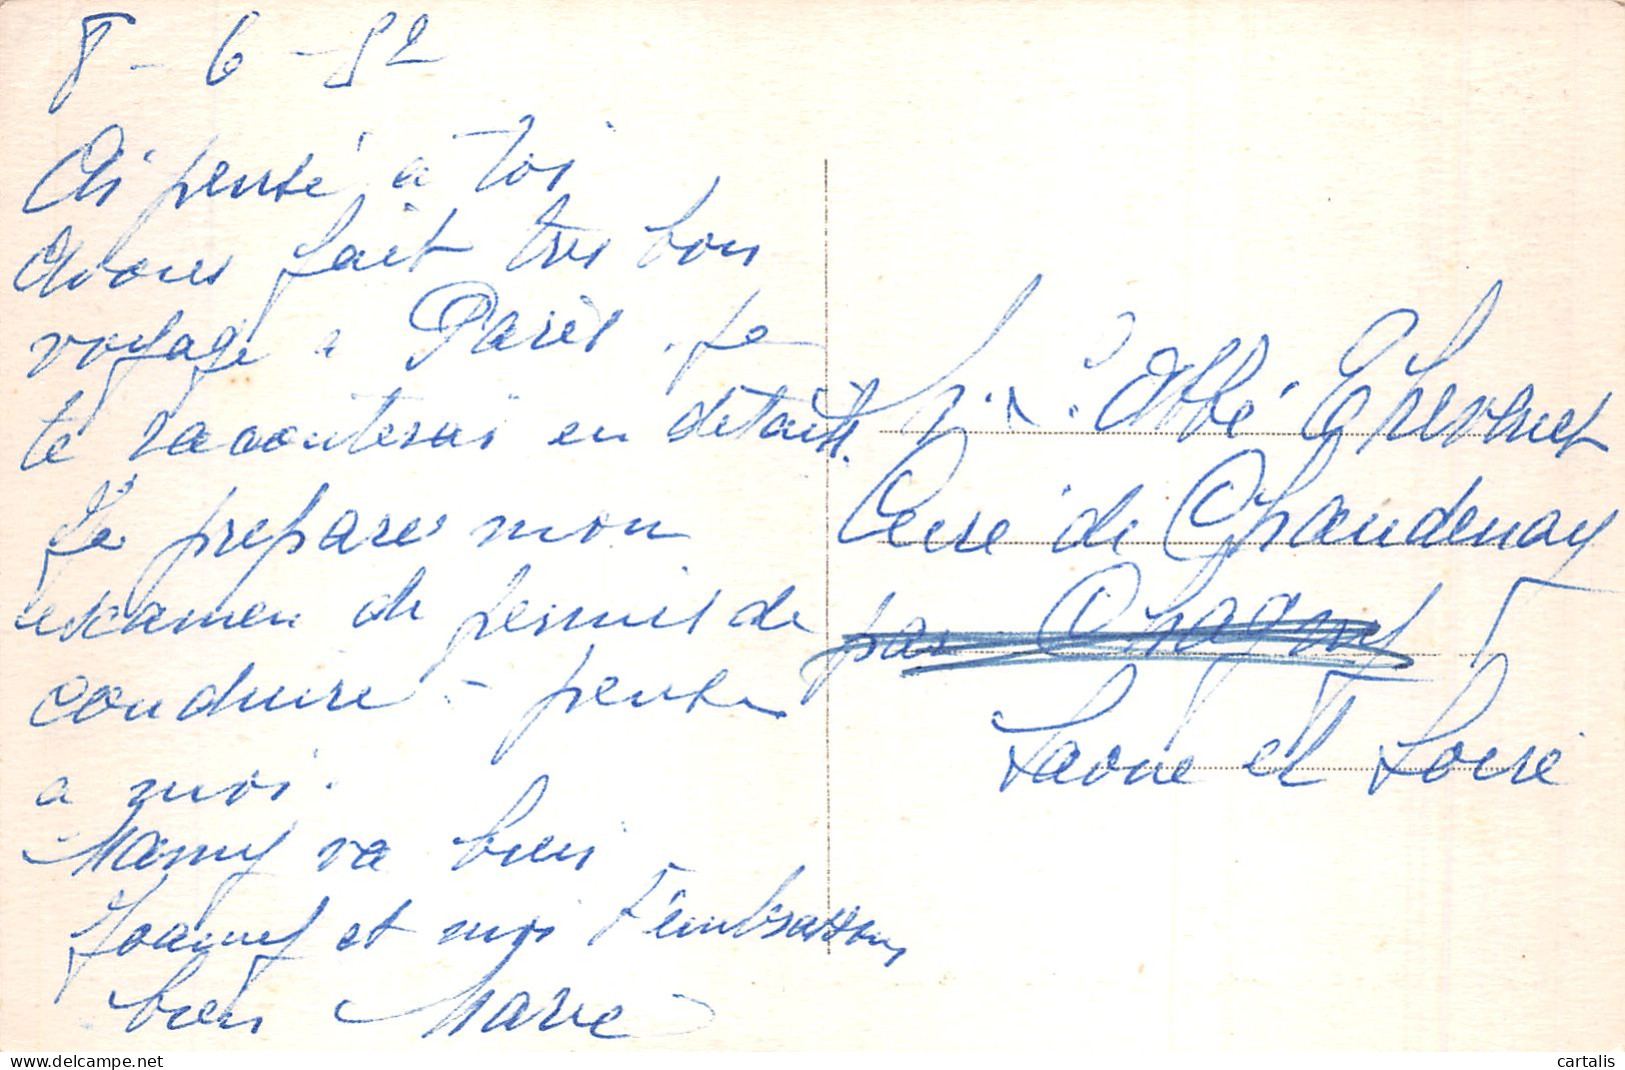 8-6-52
Ai pensé à toi
Avons fait tres bon
voyage a Paris. Je
te raconterai en details.
Je prepares mon
examen de permis de
conduire - pense
a moi.
Mamy va bien
Joanny et moi t'embrassons
bien Marie
L'Abbé Thevenet
Curé de Chaudenay
par Chagny
Saone et Loire
cartalis